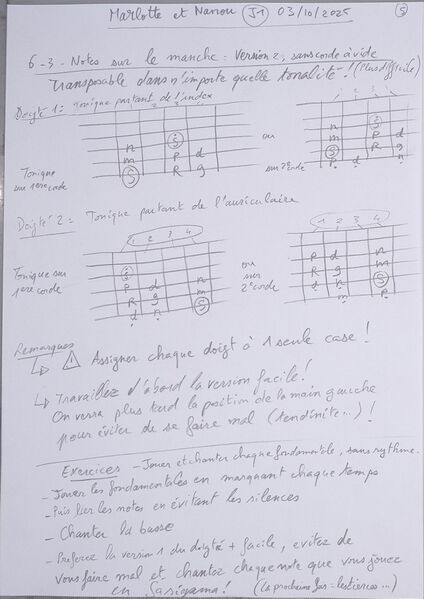 Marlotte et Nanou J1 03/10/2025 5
6-3- Notes sur le manche : Version 2, sans corde à vide
Transposable dans n'importe quelle tonalité ! (Plus difficile)
Doigté 1: Tonique partant de l'index
1 2 3 4
n Ṡ
m P d
Ⓢ R g
Tonique sur 1ere corde
ou sur 2e corde
n Ṡ
m P d
Ⓢ R g
P d n
Doigté 2 : Tonique partant de l'auriculaire
1 2 3 4
Tonique sur 1ere corde
Ṡ
P d n
R g m
d n Ⓢ
ou sur 2e corde
P d n
R g m
d n Ⓢ
m P
Remarques
! Assigner chaque doigt à 1 seule case !
↳ Travaillez d'abord la version facile !
On verra plus tard la position de la main gauche
pour éviter de se faire mal (tendinite...) !
Exercices - Jouer et chanter chaque fondamentale, sans rythme.
- Jouer les fondamentales en marquant chaque temps
- Puis lier les notes en évitant les silences
- Chanter la basse
- Préférez la version 1 du doigté + facile, évitez de
vous faire mal et chantez chaque note que vous jouez
en Sarigama ! (La prochaine fois =